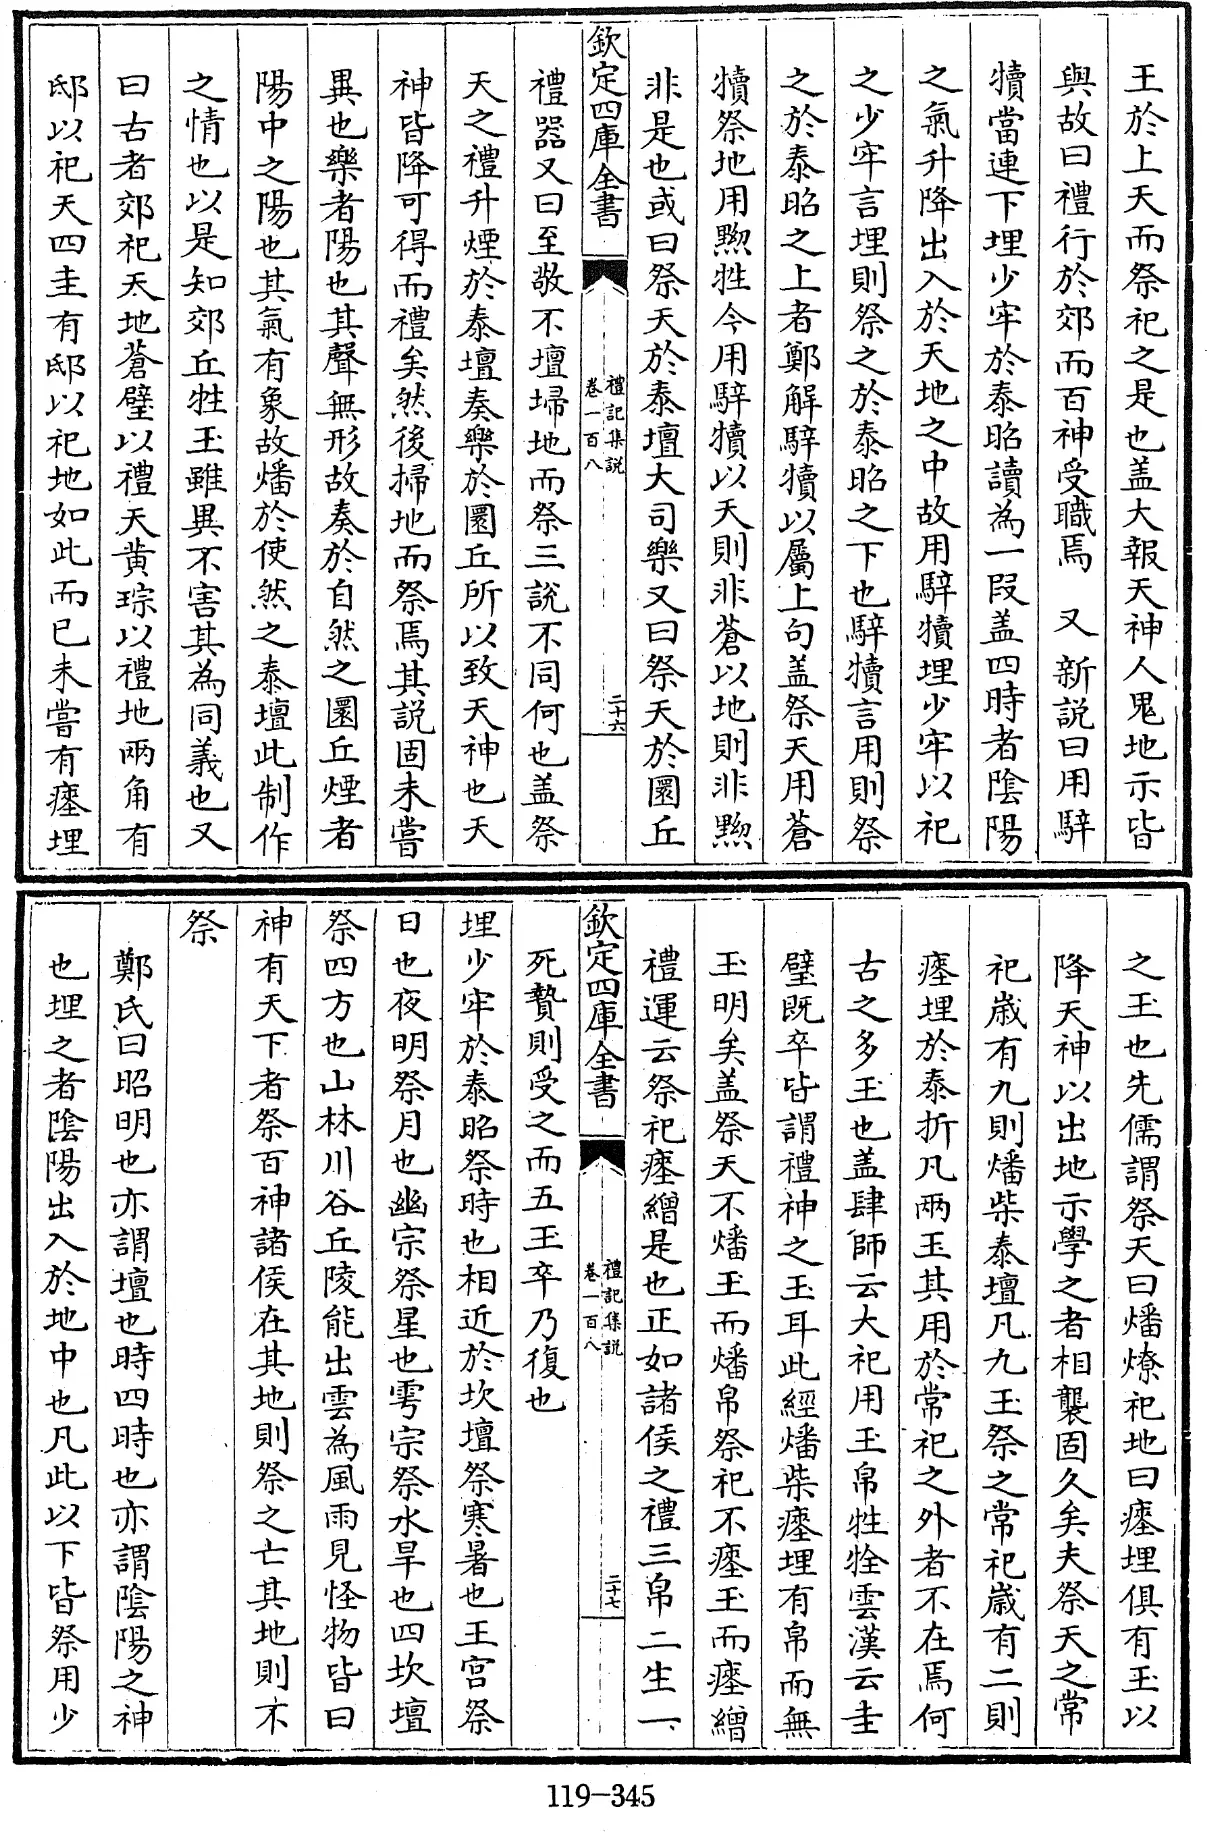 王於上天而祭祀之是也盖大報天神人鬼地示皆
與故曰禮行於郊而百神受職焉　又新説曰用騂
犢當連下埋少牢於泰昭讀為一段盖四時者陰陽
之氣升降出入於天地之中故用騂犢埋少牢以祀
之少牢言埋則祭之於泰昭之下也騂犢言用則祭
之於泰昭之上者鄭解騂犢以屬上句盖祭天用蒼
犢祭地用黝牲今用騂犢以天則非蒼以地則非黝
非是也或曰祭天於泰壇大司樂又曰祭天於圜丘
欽定四庫全書
禮記集説
卷一百八
二十六
禮器又曰至敬不壇埽地而祭三説不同何也盖祭
天之禮升煙於泰壇奏樂於圜丘所以致天神也天
神皆降可得而禮矣然後掃地而祭焉其説固未嘗
異也樂者陽也其聲無形故奏於自然之圜丘煙者
陽中之陽也其氣有象故燔於使然之泰壇此制作
之情也以是知郊丘牲玉雖異不害其為同義也又
曰古者郊祀天地蒼璧以禮天黄琮以禮地兩角有
邸以祀天四圭有邸以祀地如此而已未嘗有瘞埋
之玉也先儒謂祭天曰燔燎祀地曰瘞埋俱有玉以
降天神以出地示學之者相襲固久矣夫祭天之常
祀歲有九則燔柴泰壇凡九玉祭之常祀歲有二則
瘞埋於泰折凡兩玉其用於常祀之外者不在焉何
古之多玉也盖肆師云大祀用玉帛牲牷雲漢云圭
璧既卒皆謂禮神之玉耳此經燔柴瘞埋有帛而無
玉明矣盖祭天不燔玉而燔帛祭祀不瘞玉而瘞繒
禮運云祭祀瘞繒是也正如諸侯之禮三帛二生一
欽定四庫全書
禮記集説
卷一百八
二十七
死贄則受之而五玉卒乃復也
埋少牢於泰昭祭時也相近於坎壇祭寒暑也王宮祭
日也夜明祭月也幽宗祭星也雩宗祭水旱也四坎壇
祭四方也山林川谷丘陵能出雲為風雨見怪物皆曰
神有天下者祭百神諸侯在其地則祭之亡其地則不
祭
鄭氏曰昭明也亦謂壇也時四時也亦謂陰陽之神
也埋之者陰陽出入於地中也凡此以下皆祭用少
119-345